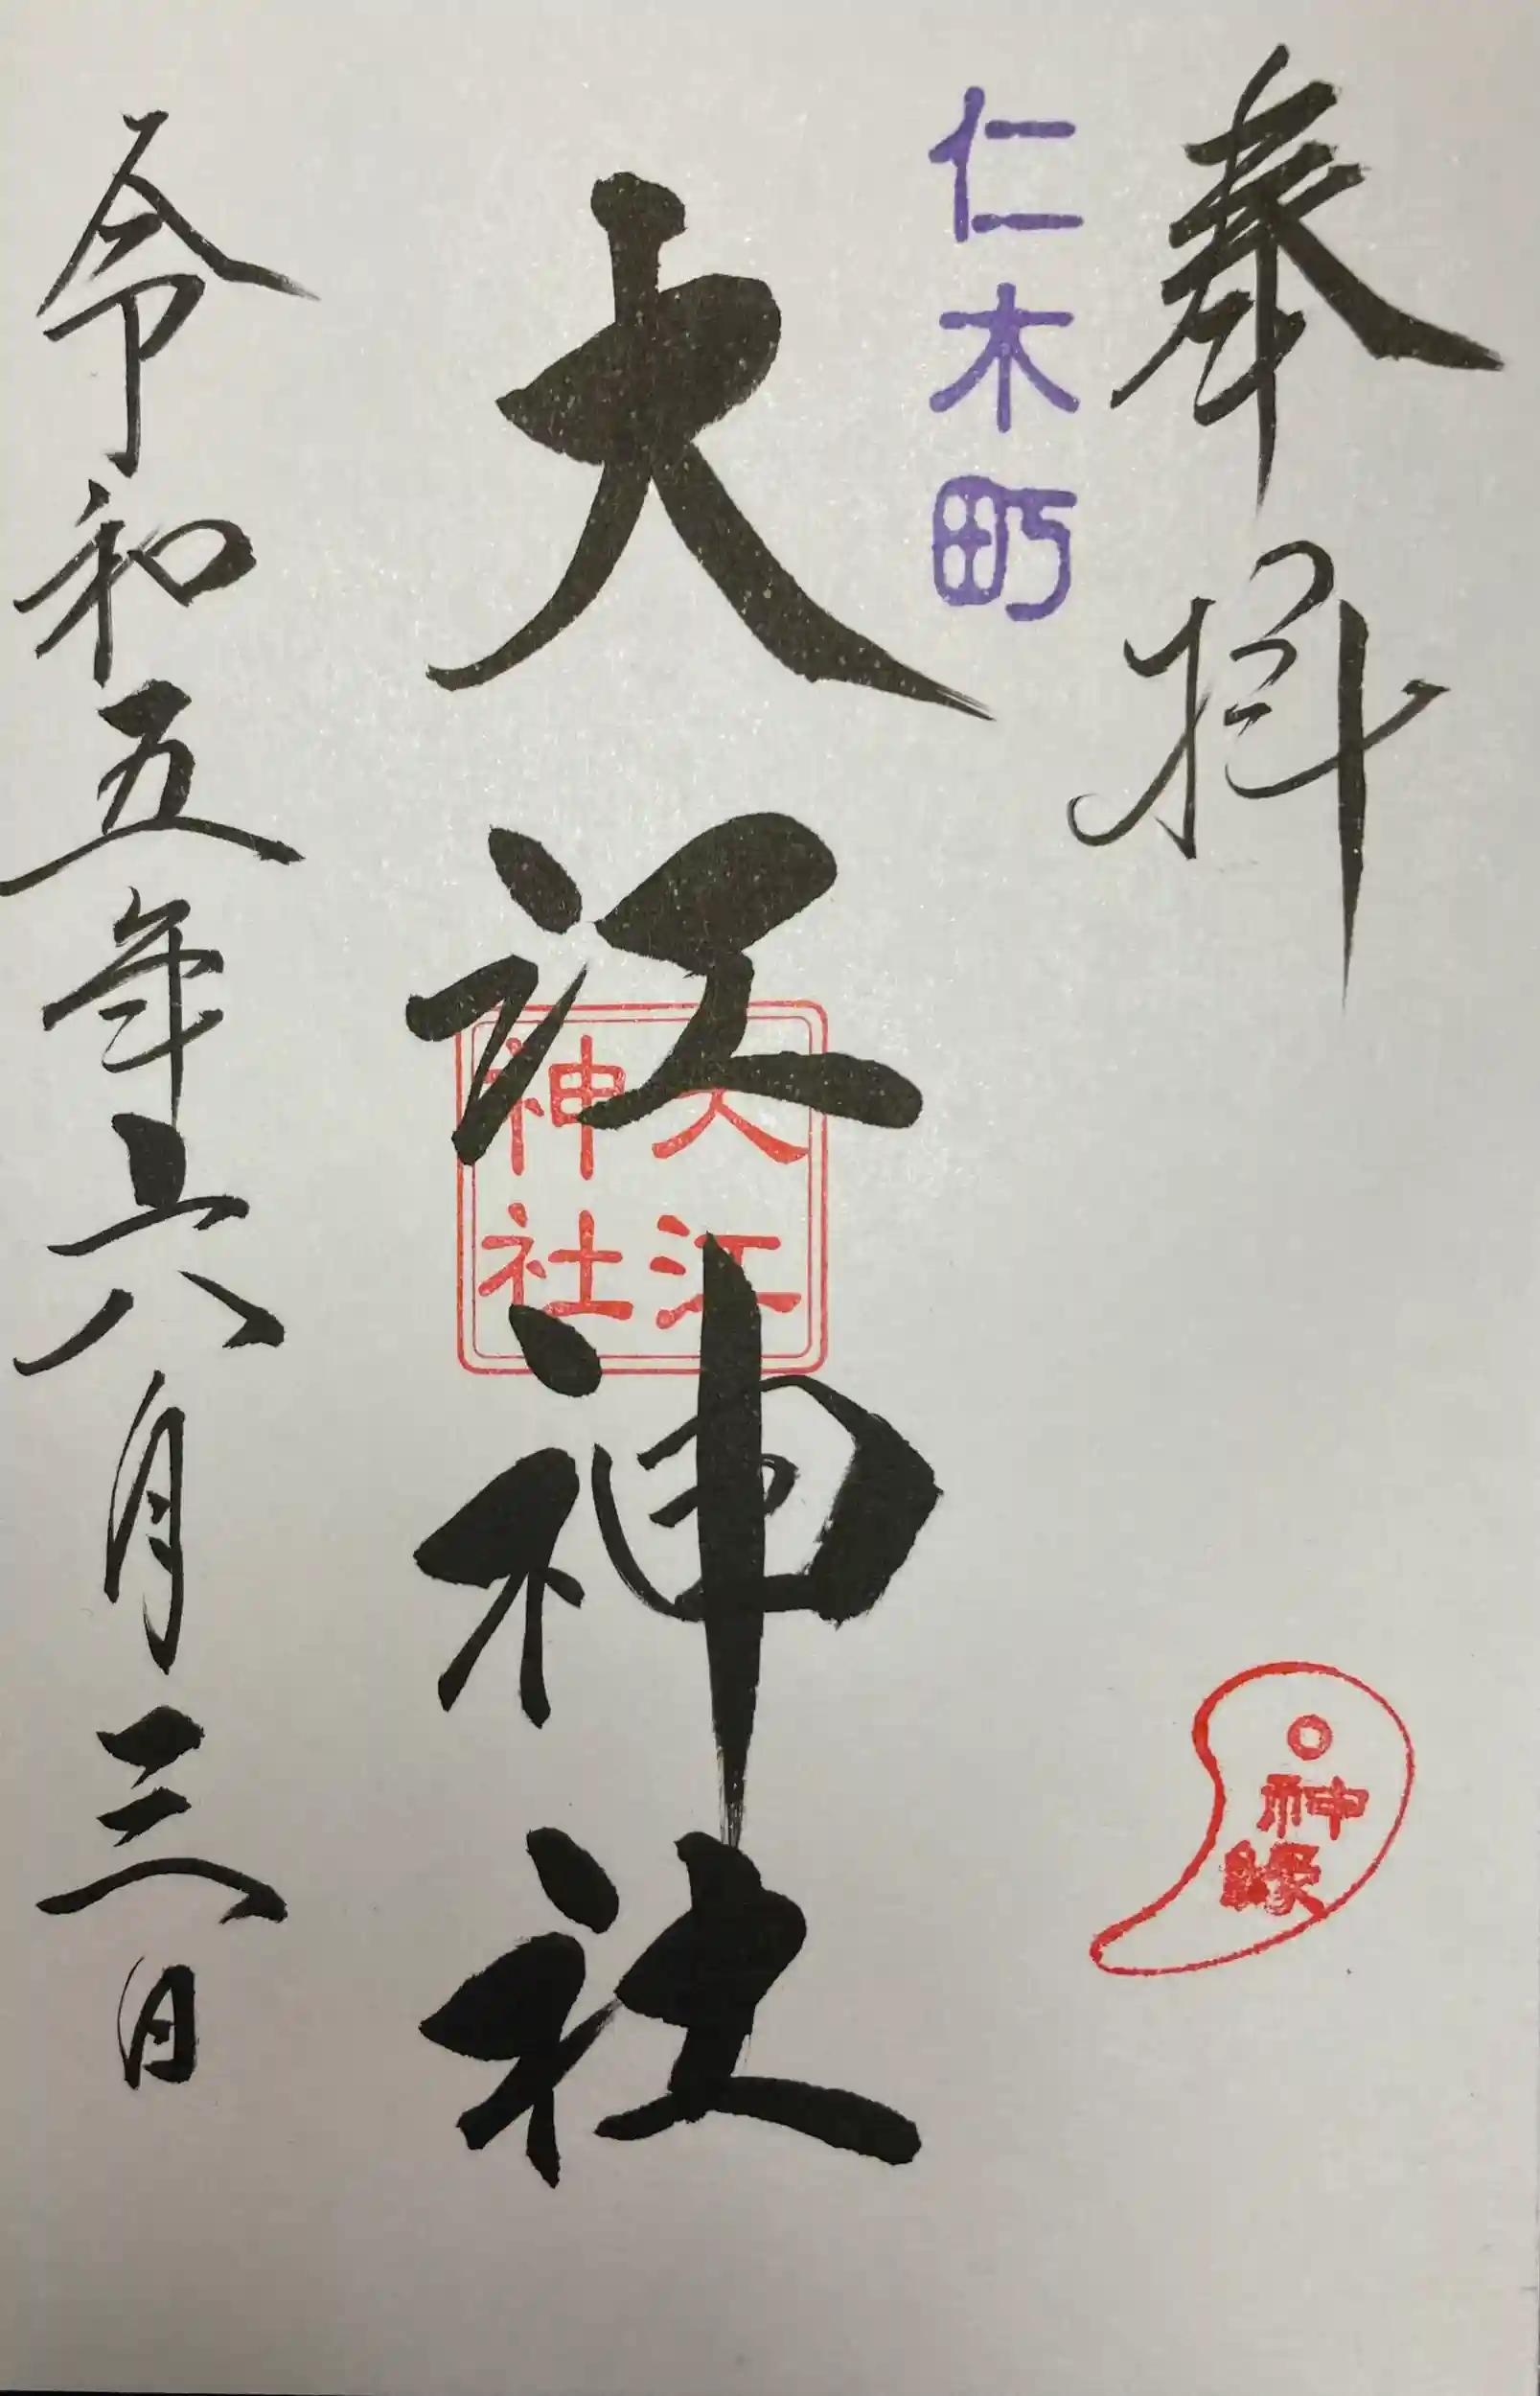 奉拝
仁木町
大江神社
大江神社
神縁
令和五年六月三日